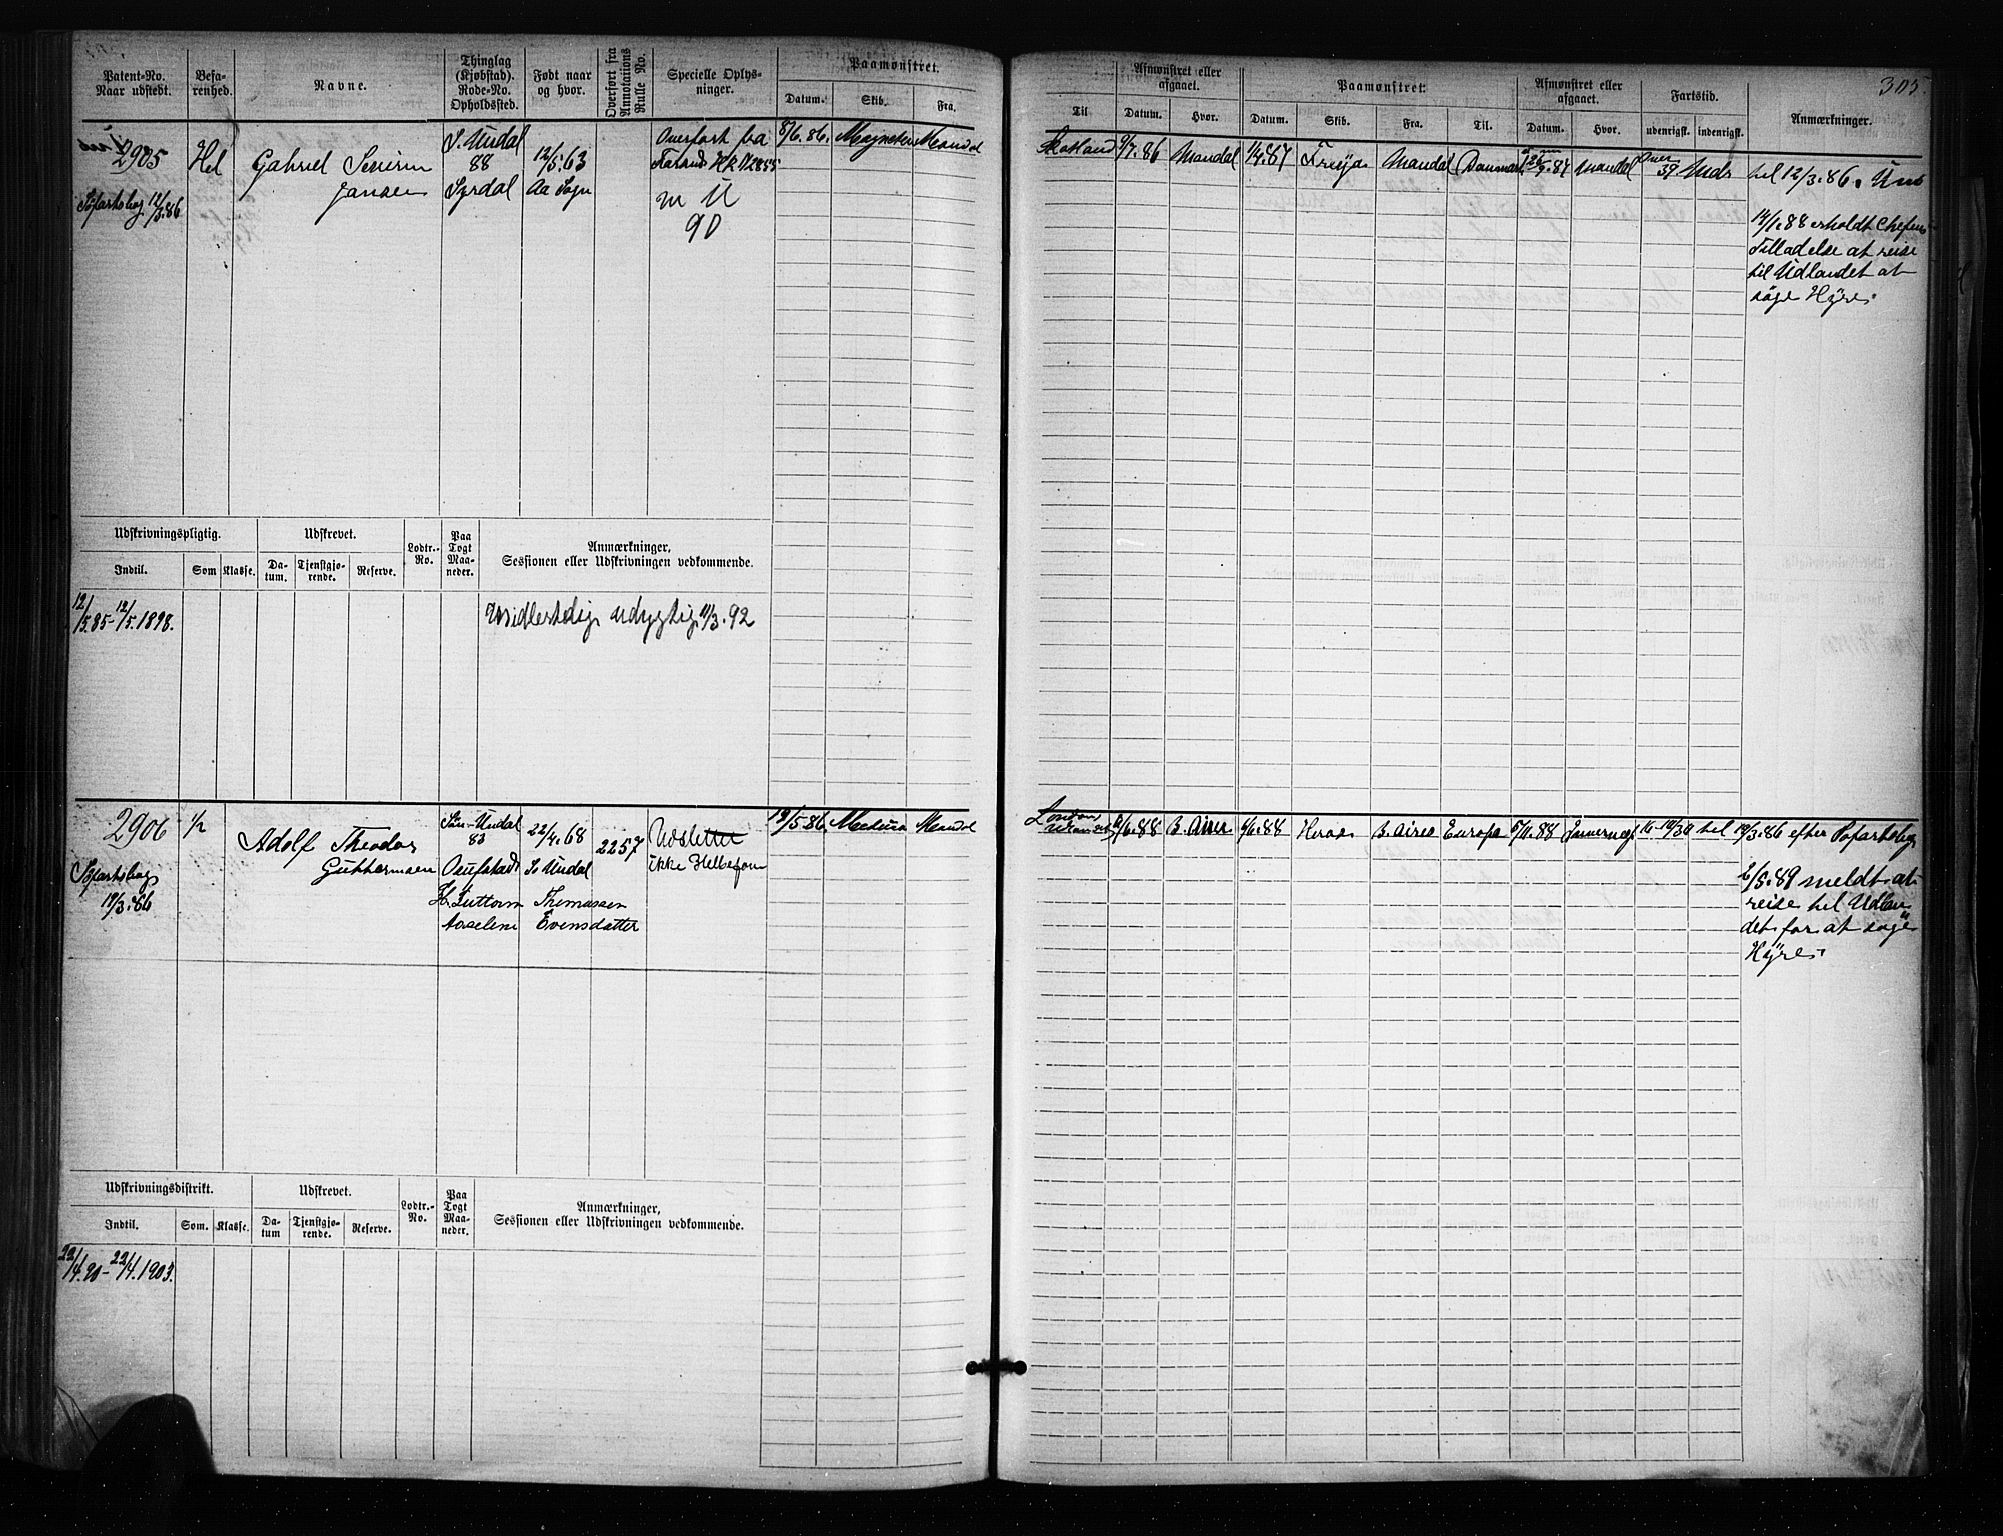 305.
Patent-No.
Naar udstedt.
Befa-
renhed.
Navne.
Thinglag
(Kjøbstad).
Rode-No.
Opholdssted.
Født naar
og hvor.
Overført fra
Annotations
Rulle No.
Specielle Oplys-
ninger.
Paamønstret.
Datum.
Skib.
Fra.
Til
Afmønstret eller
afgaaet.
Datum.
Hvor.
Paamønstret:
Datum.
Skib.
Fra.
Til.
Afmønstret eller
afgaaet.
Datum.
Hvor.
Fartstid.
udenrigsk.
indenrigsk.
Anmærkninger.
2905
Søfartsbog 12/3.86
Hel
Gabriel Severin
Jansen
S. Undal
88
Syrdal
12/5.63
Aa Sogn
Overført fra
Farsund
m U
90
8/6.86.
Mandal
Skotland
9/7.86
Mandal
1/4.87
Freya
Mandal
Danmark
Mandal
39
Mdr
til 12/3.86.
14/1.88 erholdt Chefens
Tilladelse at reise
til Udlandet at
søge Hyre.
Udskrivningspligtig.
Indtil.
Som
Klasse.
Udskrevet.
Da-
tum.
Tjenstgjø-
rende.
Reserve.
Lodtr.-
No.
Paa
Togt
Maa-
neder.
Anmærkninger,
Sessionen eller Udskrivningen vedkommende.
12/5.85-12/5.1898.
Midlertidig udygtig 11/3.92
2906
Søfartsbog
19/3.86
1/2
Adolf Theodor
Guttormsen
Søn-Undal
83
H. Guttorm
Aaselene
22/4.68
S. Undal
Thomassen
Evensdatter
2257
Udslettet
ikke Helbefom
19/5.86
Medusa
Mandal
London
6/6.88
B. Aires
9/6.88
B. Aires
Europa
5/11.88
til
19/3.86 efter Søfartsbog
6/5.89 meldt at
reise til Udlan
det for at søge
Hyre.
Udskrivningsdistrikt.
Indtil.
Som.
Klasse.
Udskrevet.
Da-
tum
Tjenstgjø-
rende.
Reserve.
Lodtr.-
No.
Paa
Togt
Maa-
neder.
Anmærkninger,
Sessionen eller Udskrivningen vedkommende.
22/4.90-22/4.1903.